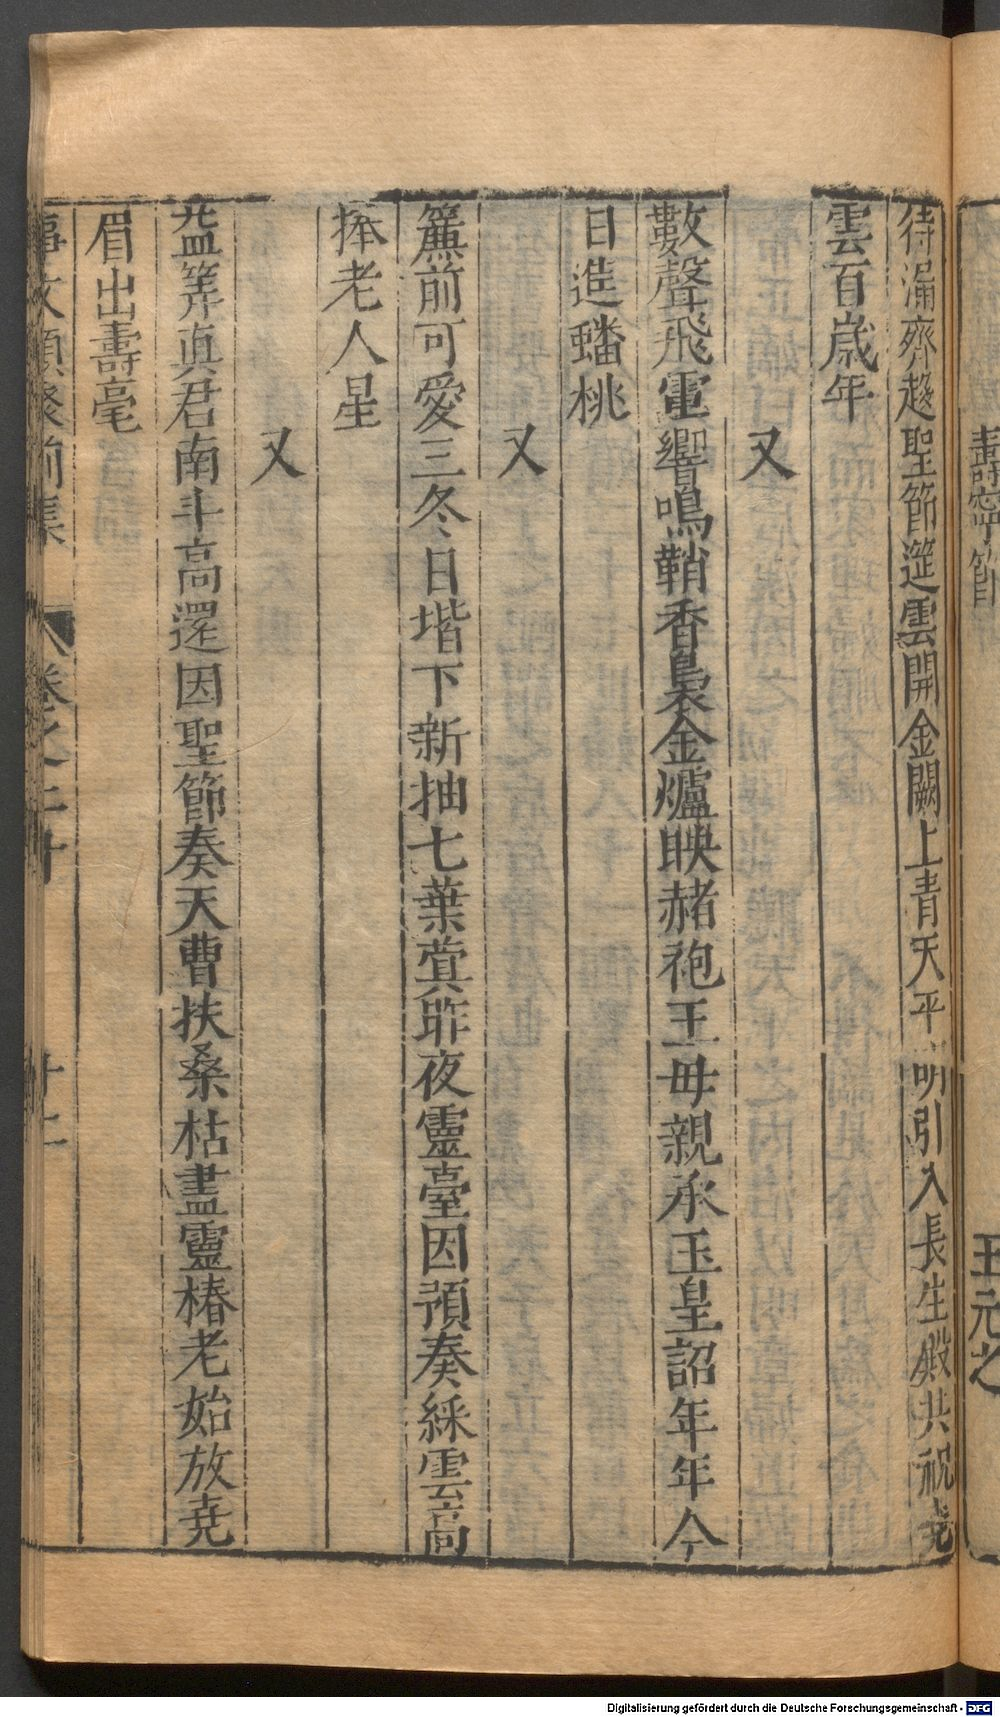 壽寧節
王元之
待漏齊趍聖節筵雲開金闕上青天平明引入長生殿共祝堯
雲百歲年
又
數聲飛電響鳴鞘香裊金爐映赭袍王母親承玉皇詔年年今
日進蟠桃
又
簾前可愛三冬日堦下新抽七葉蓂昨夜靈臺因預奏綵雲高
捧老人星
又
益筭眞君南斗高還因聖節奏天曹扶桑枯盡靈椿老始放堯
眉出壽毫
事文類聚前集
卷之二十
十二
Digitalisierung gefördert durch die Deutsche Forschungsgemeinschaft - DFG